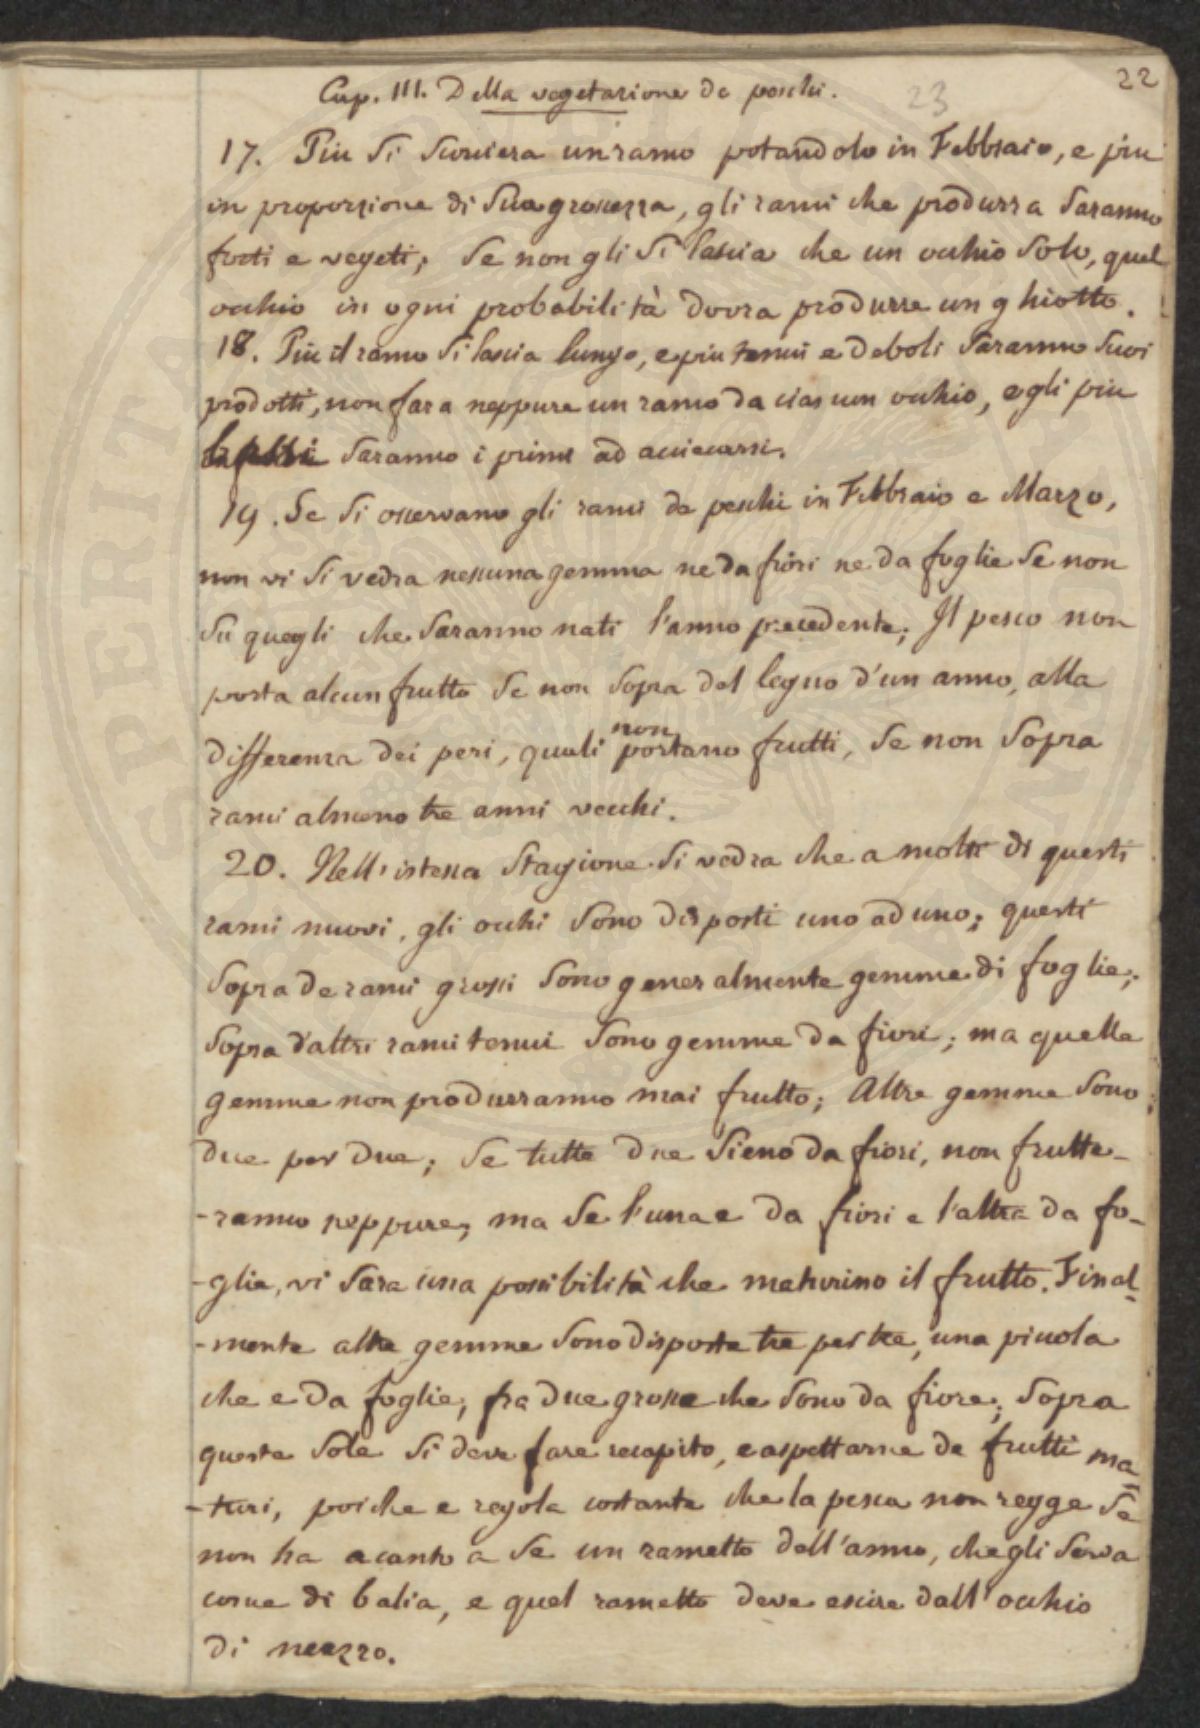 22
23
Cap. III. Della vegetazione de peschi.
17. Piu si scorciera un ramo potandolo in Febbraio, e piu
in proporzione di sua grossezza, gli rami che produrra saranno
forti e vegeti; se non gli si lascia che un occhio solo, quel
occhio in ogni probabilità dovra produrre un ghiotto.
18. Piu il ramo si lascia lungo, e piu tenui e deboli saranno suoi
prodotti, non fara neppure un ramo da ciascun occhio, e gli piu
bassi saranno i primi ad acciecarsi.
19. Se si osservano gli rami de peschi in Febbraio e Marzo,
non vi si vedra nessuna gemma ne da fiori ne da foglie se non
su quegli che saranno nati l'anno precedente; Il pesco non
porta alcun frutto se non sopra del legno d'un anno, alla
differenza dei peri, quali non portano frutti, se non sopra
rami almeno tre anni vecchi.
20. Nell'istessa stagione si vedra che a molti di questi
rami nuovi, gli occhi sono disposti uno ad uno; questi
sopra de rami grossi sono generalmente gemme di foglie;
sopra d'altri rami tenui sono gemme da fiori; ma quelle
gemme non produrranno mai frutto; Altre gemme sono
due per due; se tutte due sieno da fiori, non frutte-
-ranno neppure, ma se l'una e da fiori e l'altra da fo-
-glie, vi sara una possibilità che maturino il frutto. Final-
-mente altre gemme sono disposte tre per tre, una piccola
che e da foglie, fra due grosse che sono da fiore; sopra
queste sole si deve fare recapito, e aspettarne de frutti ma-
-turi, poiche e regola costante che la pesca non regge se
non ha acanto a se un rametto dell'anno, che gli serva
come di balia, e quel rametto deve escire dall'occhio
di mezzo.